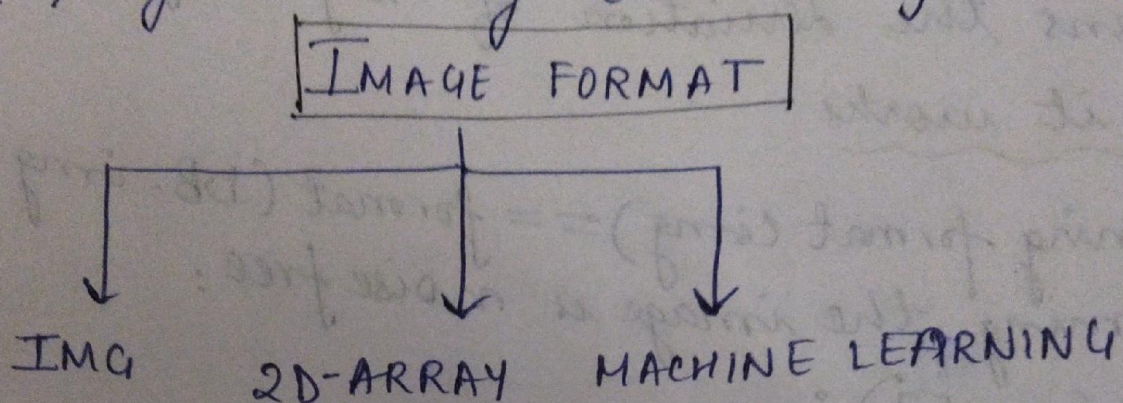 IMAGE FORMAT
IMG 2D-ARRAY MACHINE LEARNING